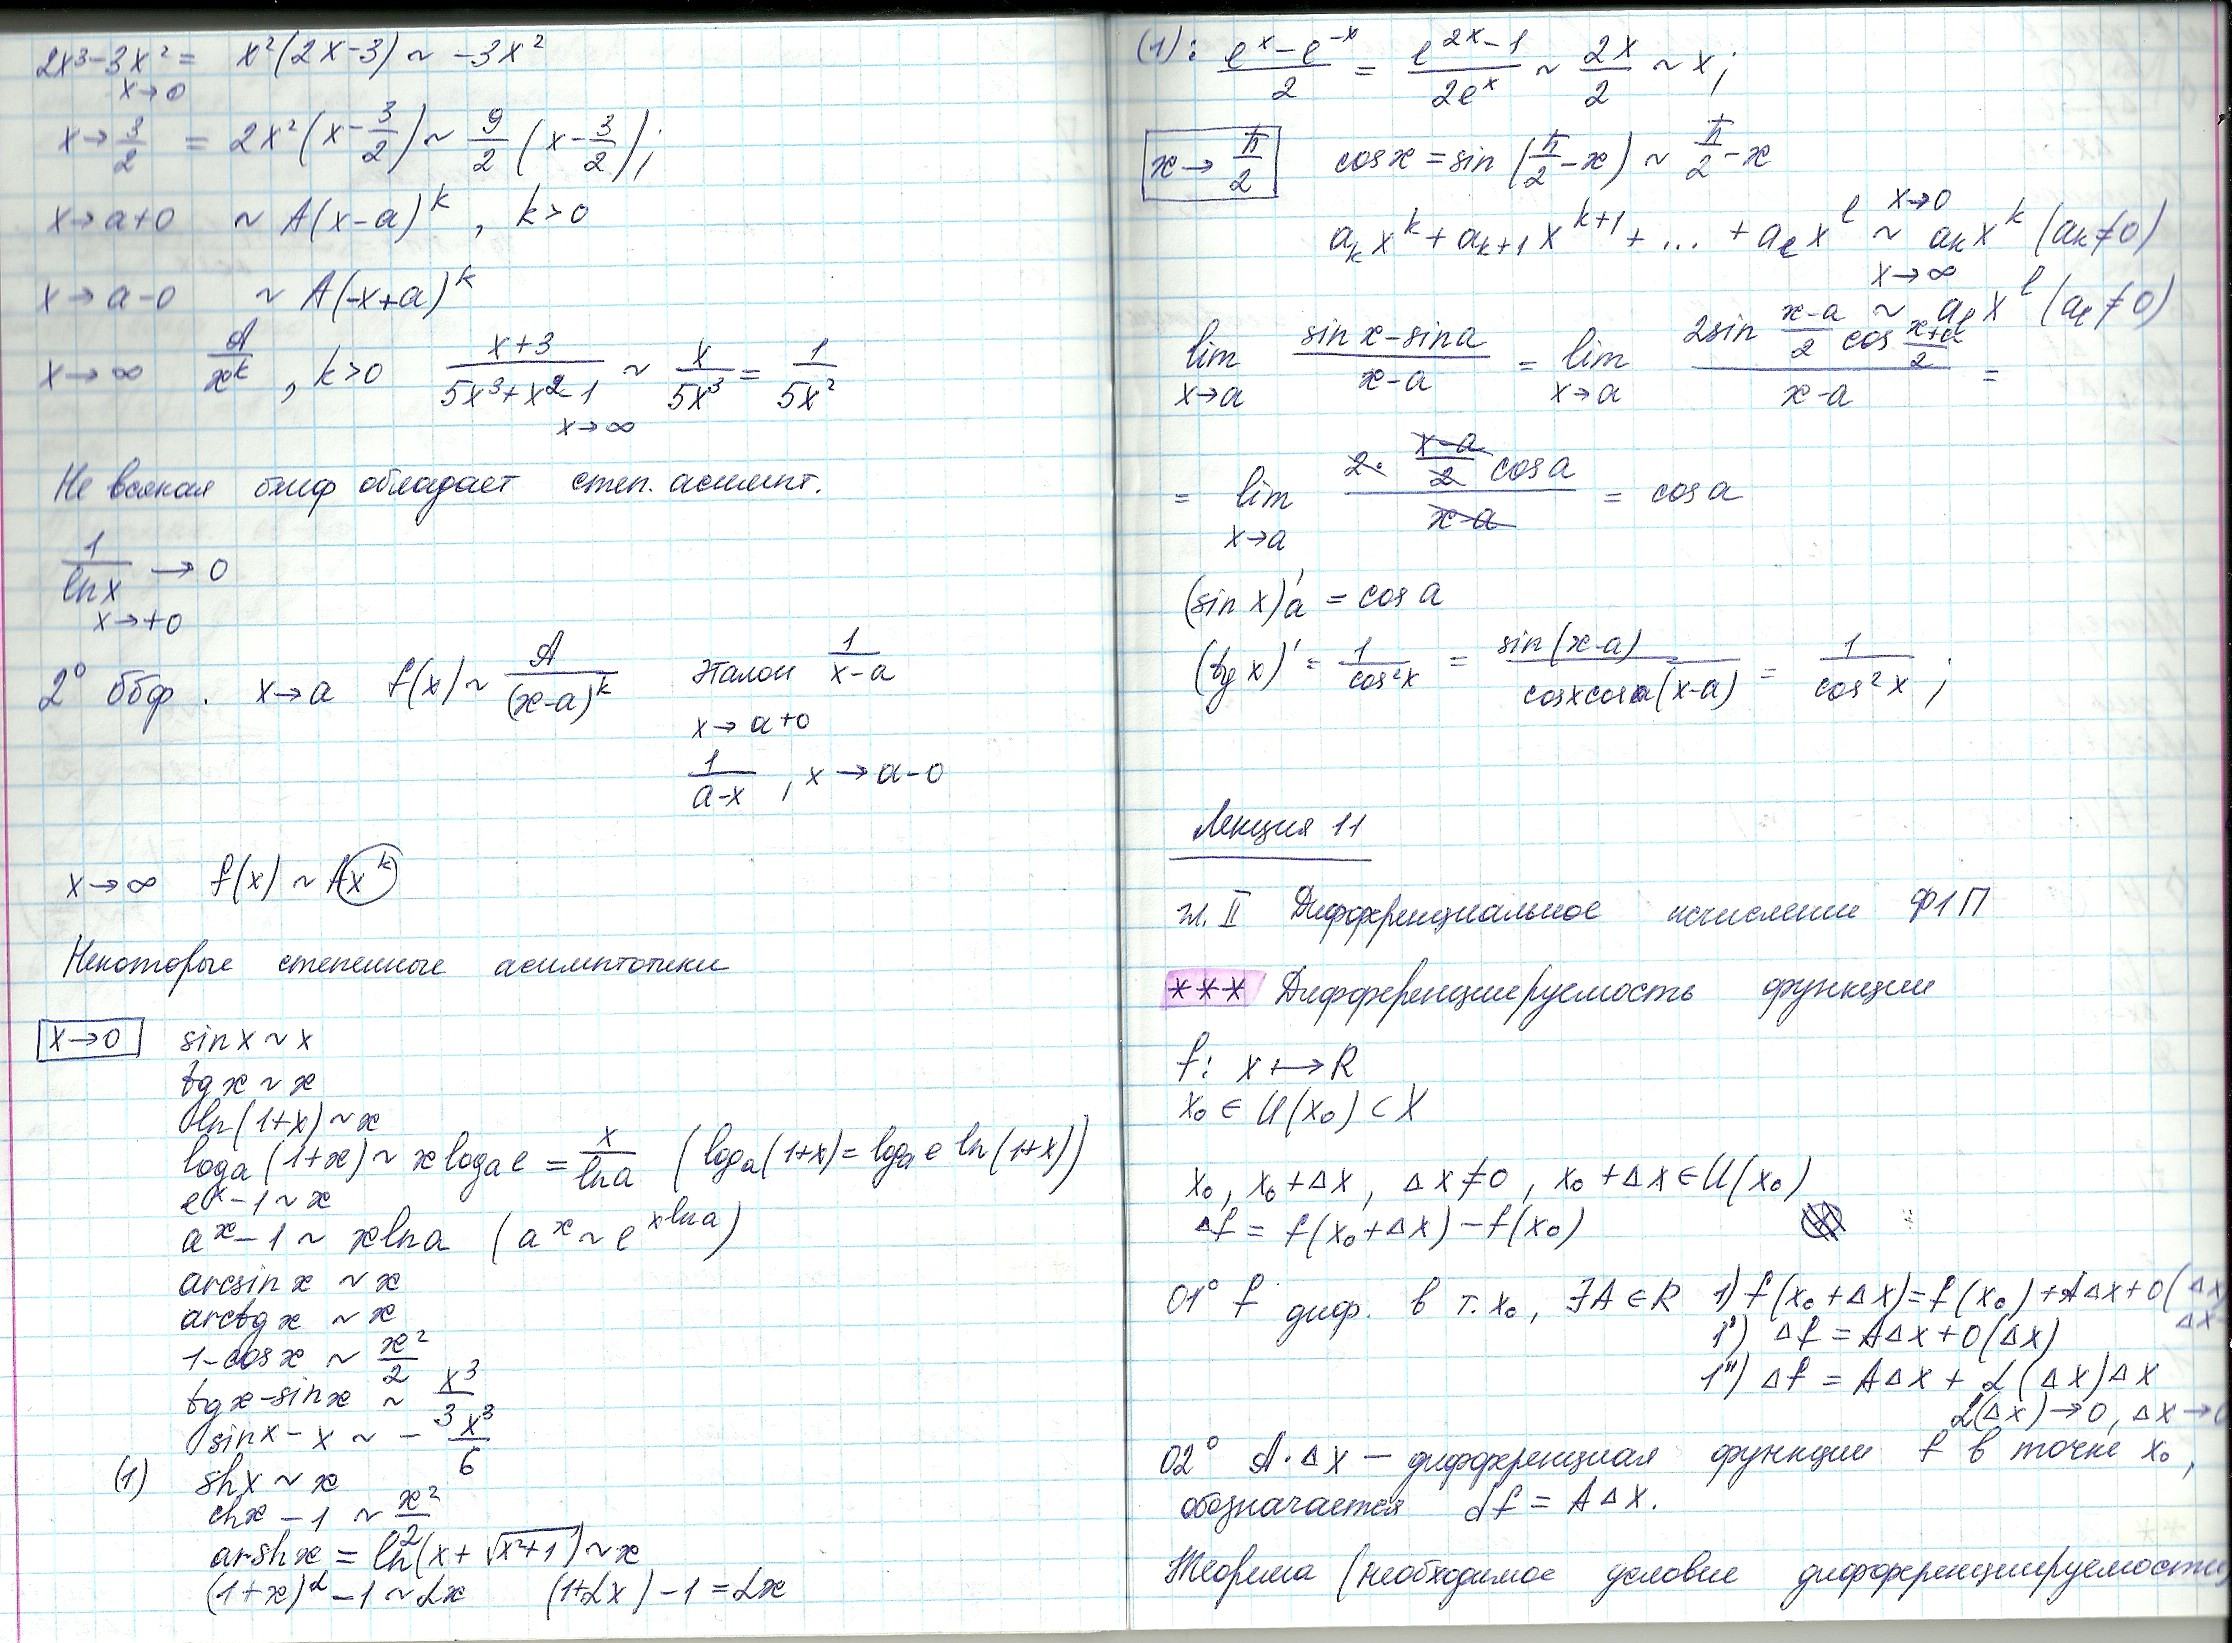 2x³-3x² = x²(2x-3) ~ -3x²
x→0
x→3/2 = 2x²(x-3/2) ~ 9/2 (x-3/2);
x→a+0 ~ A(x-a)^k, k>0
x→a-0 ~ A(-x+a)^k
x→∞ A/x^k, k>0 (x+3)/(5x³+x²-1) ~ x/5x³ = 1/5x²
x→∞
Не всякая бмф обладает степ. асимпт.
1/ln x → 0
x→+0
2° ббф. x→a f(x) ~ A/(x-a)^k эталон 1/(x-a)
x→a+0
1/(a-x), x→a-0
x→∞ f(x) ~ Ax^k
Некоторые степенные асимптотики
x→0 sin x ~ x
tg x ~ x
ln(1+x) ~ x
log_a(1+x) ~ x log_a e = x/ln a (log_a(1+x) = log_a e ln(1+x))
e^x-1 ~ x
a^x-1 ~ x ln a (a^x ~ e^(x ln a))
arcsin x ~ x
arctg x ~ x
1-cos x ~ x²/2
tg x-sin x ~ x³/3
sin x - x ~ - x³/6
(1) sh x ~ x
ch x - 1 ~ x²/2
arsh x = ln(x+√(x²+1)) ~ x
(1+x)^α -1 ~ αx (1+αx)-1 = αx
(1): (e^x-e^-x)/2 = (e^2x-1)/2e^x ~ 2x/2 ~ x;
x→π/2 cos x = sin(π/2-x) ~ π/2-x
x→0
a_k x^k + a_k+1 x^k+1 + ... + a_l x^l ~ a_k x^k (a_k≠0)
x→∞
~ a_l x^l (a_l≠0)
lim x→a (sin x-sin a)/(x-a) = lim x→a (2sin (x-a)/2 cos (x+a)/2)/(x-a) =
= lim x→a (2·(x-a)/2 cos a)/(x-a) = cos a
(sin x)'a = cos a
(tg x)' = 1/cos²x = sin(x-a)/(cos x cos a(x-a)) = 1/cos²x;
Лекция 11
гл. II Дифференциальное исчисление Ф1П
*** Дифференцируемость функции
f: X ⟼ R
x₀ ∈ U(x₀) ⊂ X
x₀, x₀+Δx, Δx≠0, x₀+Δx∈U(x₀)
Δf = f(x₀+Δx) - f(x₀)
01° f диф. в т. x₀, ∃A∈R 1) f(x₀+Δx)=f(x₀)+AΔx+o(Δx)
1') Δf = AΔx+o(Δx)
1'') Δf = AΔx + α(Δx)Δx
α(Δx)→0, Δx→0
02° A·Δx — дифференциал функции f в точке x₀,
обозначается df = AΔx.
Теорема (необходимое условие дифференцируемости)